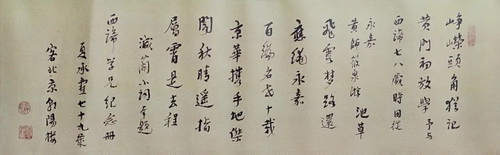 峥嵘头角犹记
黄门初放学予与
西谛七八岁时同从
永嘉
黄师筱泉游池草
飞云梦路还
应绕永嘉
百编名世十载
京华携手地俊
闻秋晴遥指
层霄是去程
减兰小词奉题
西谛学兄纪念册
夏承焘七十九岁
客北京朝阳楼